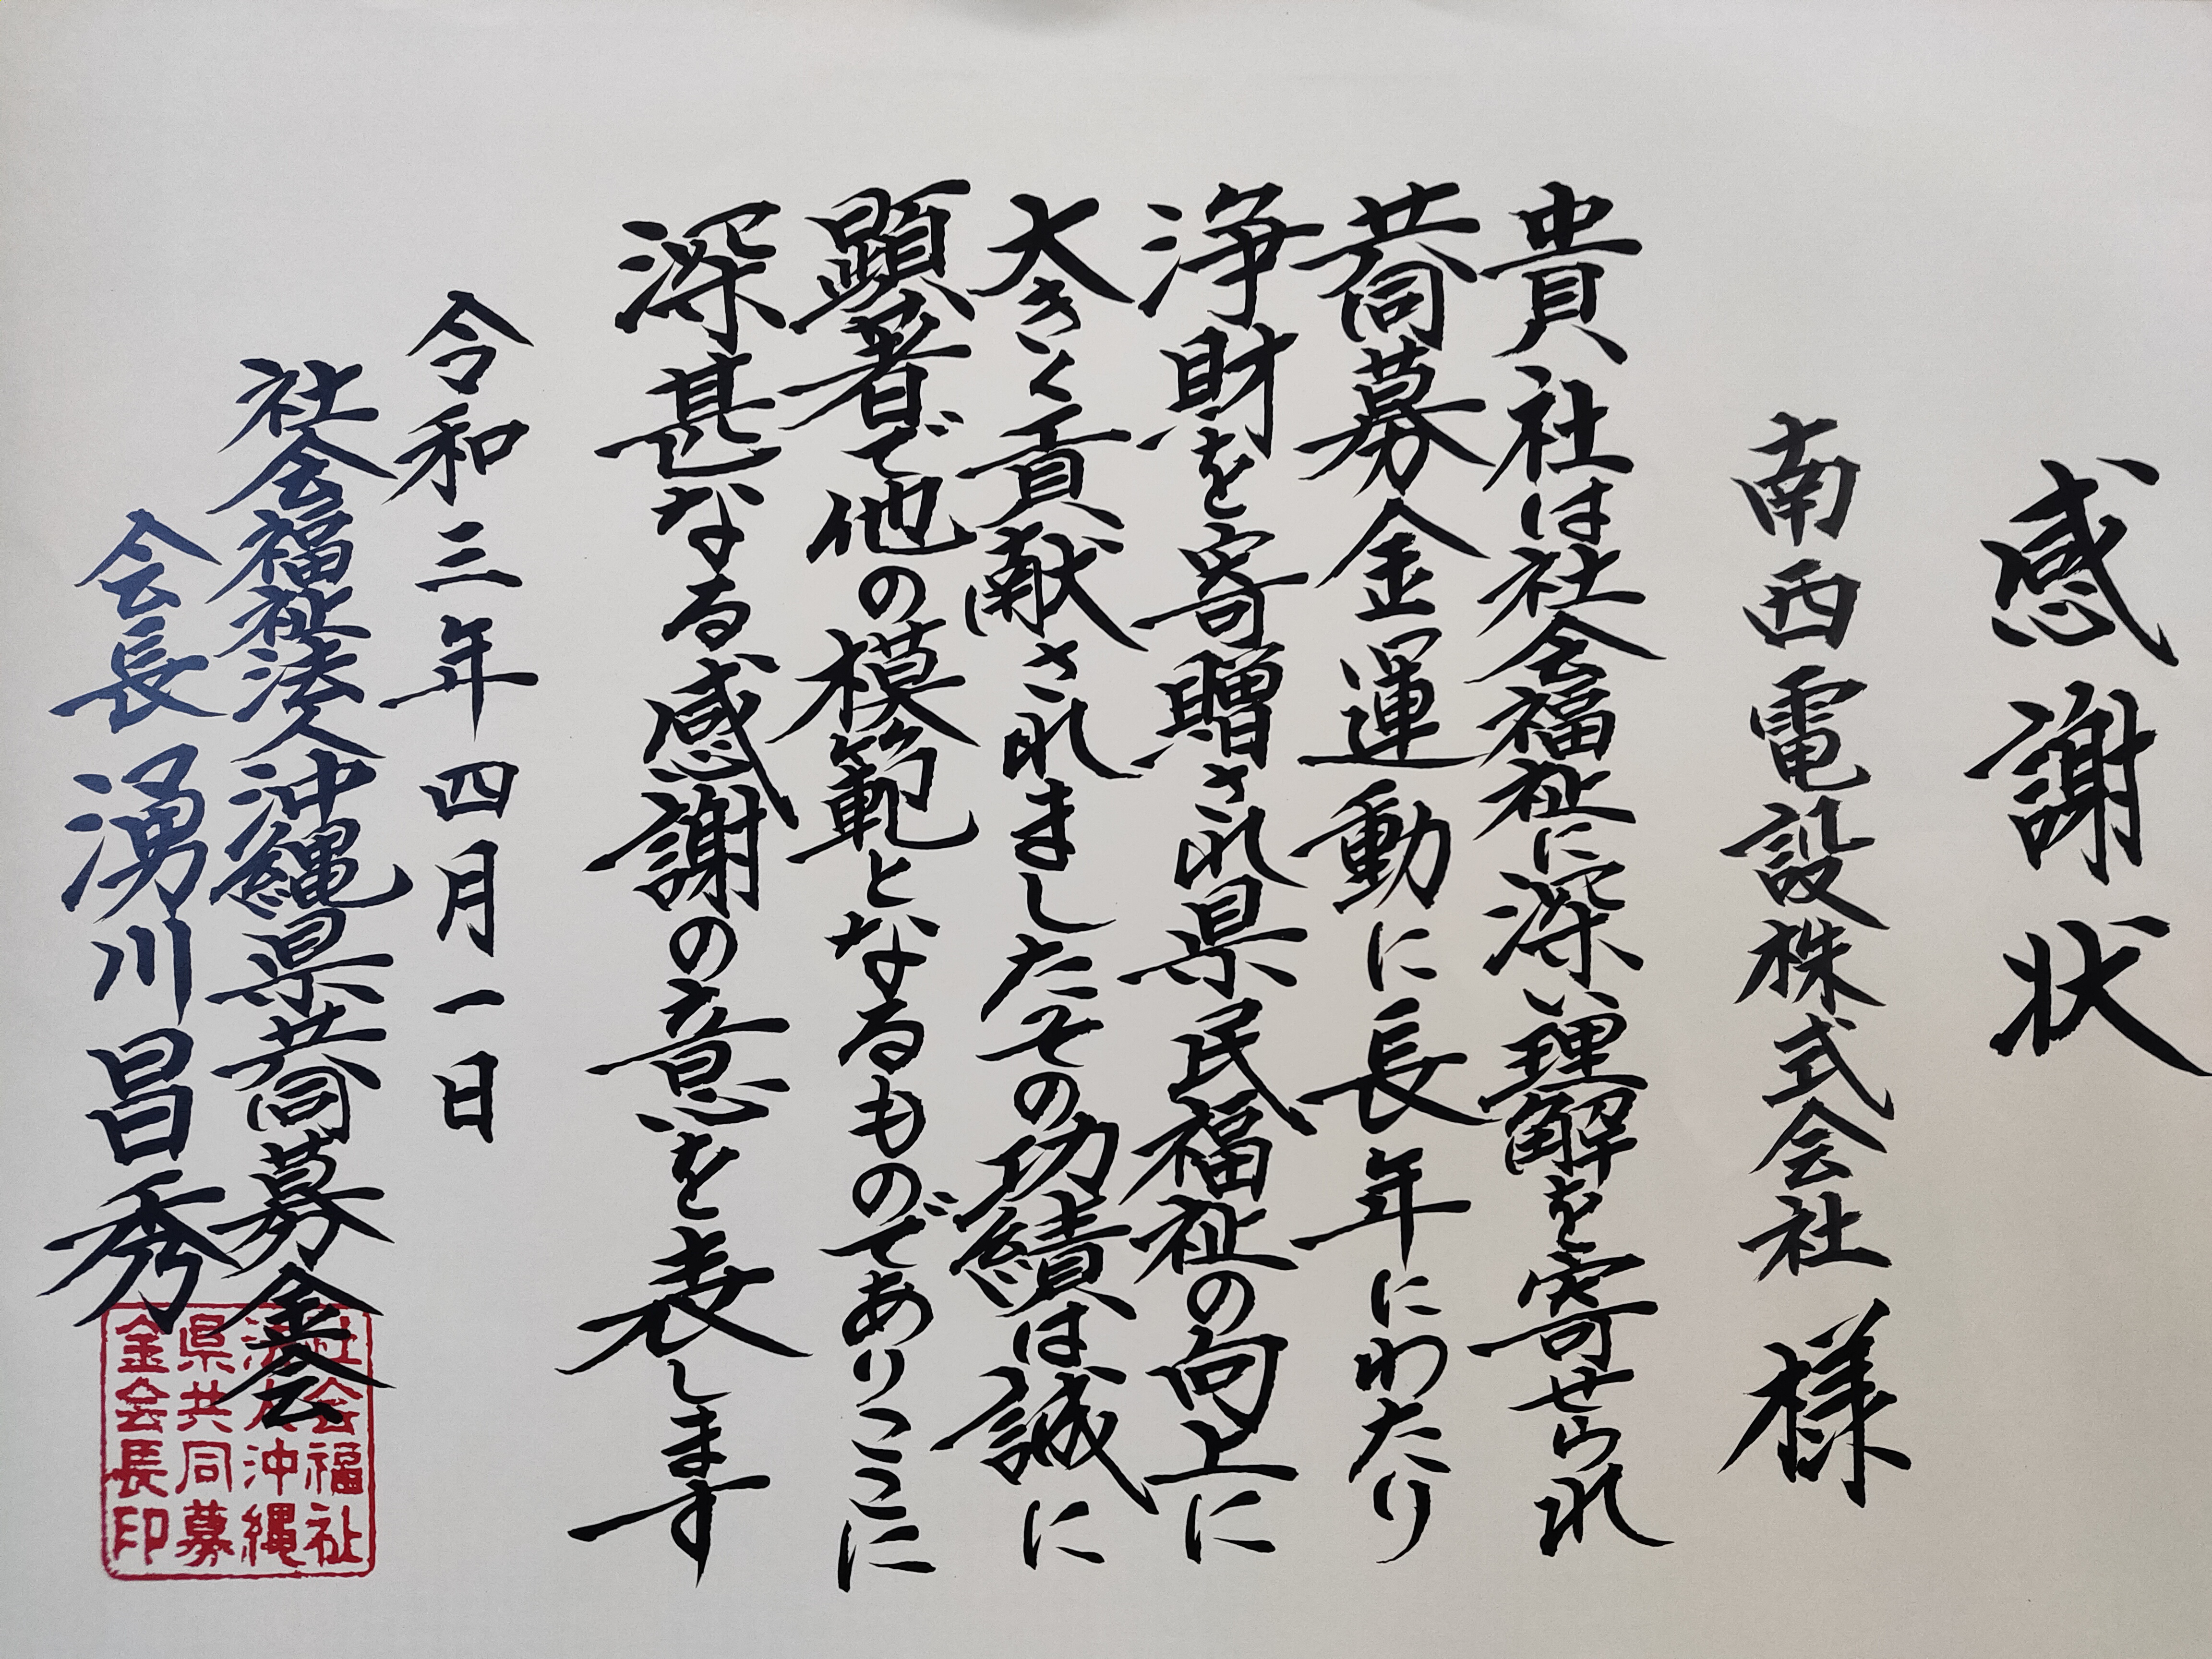 感謝状
南西電設株式会社 様
貴社は社会福祉に深い理解を寄せられ
共同募金運動に長年にわたり
浄財を寄贈され県民福祉の向上に
大きく貢献されましたその功績は誠に
顕著で他の模範となるものでありここに
深甚なる感謝の意を表します
令和三年四月一日
社会福祉法人沖縄県共同募金会
会長 湧川昌秀
社会福祉
法人沖縄
県共同募
金会長印